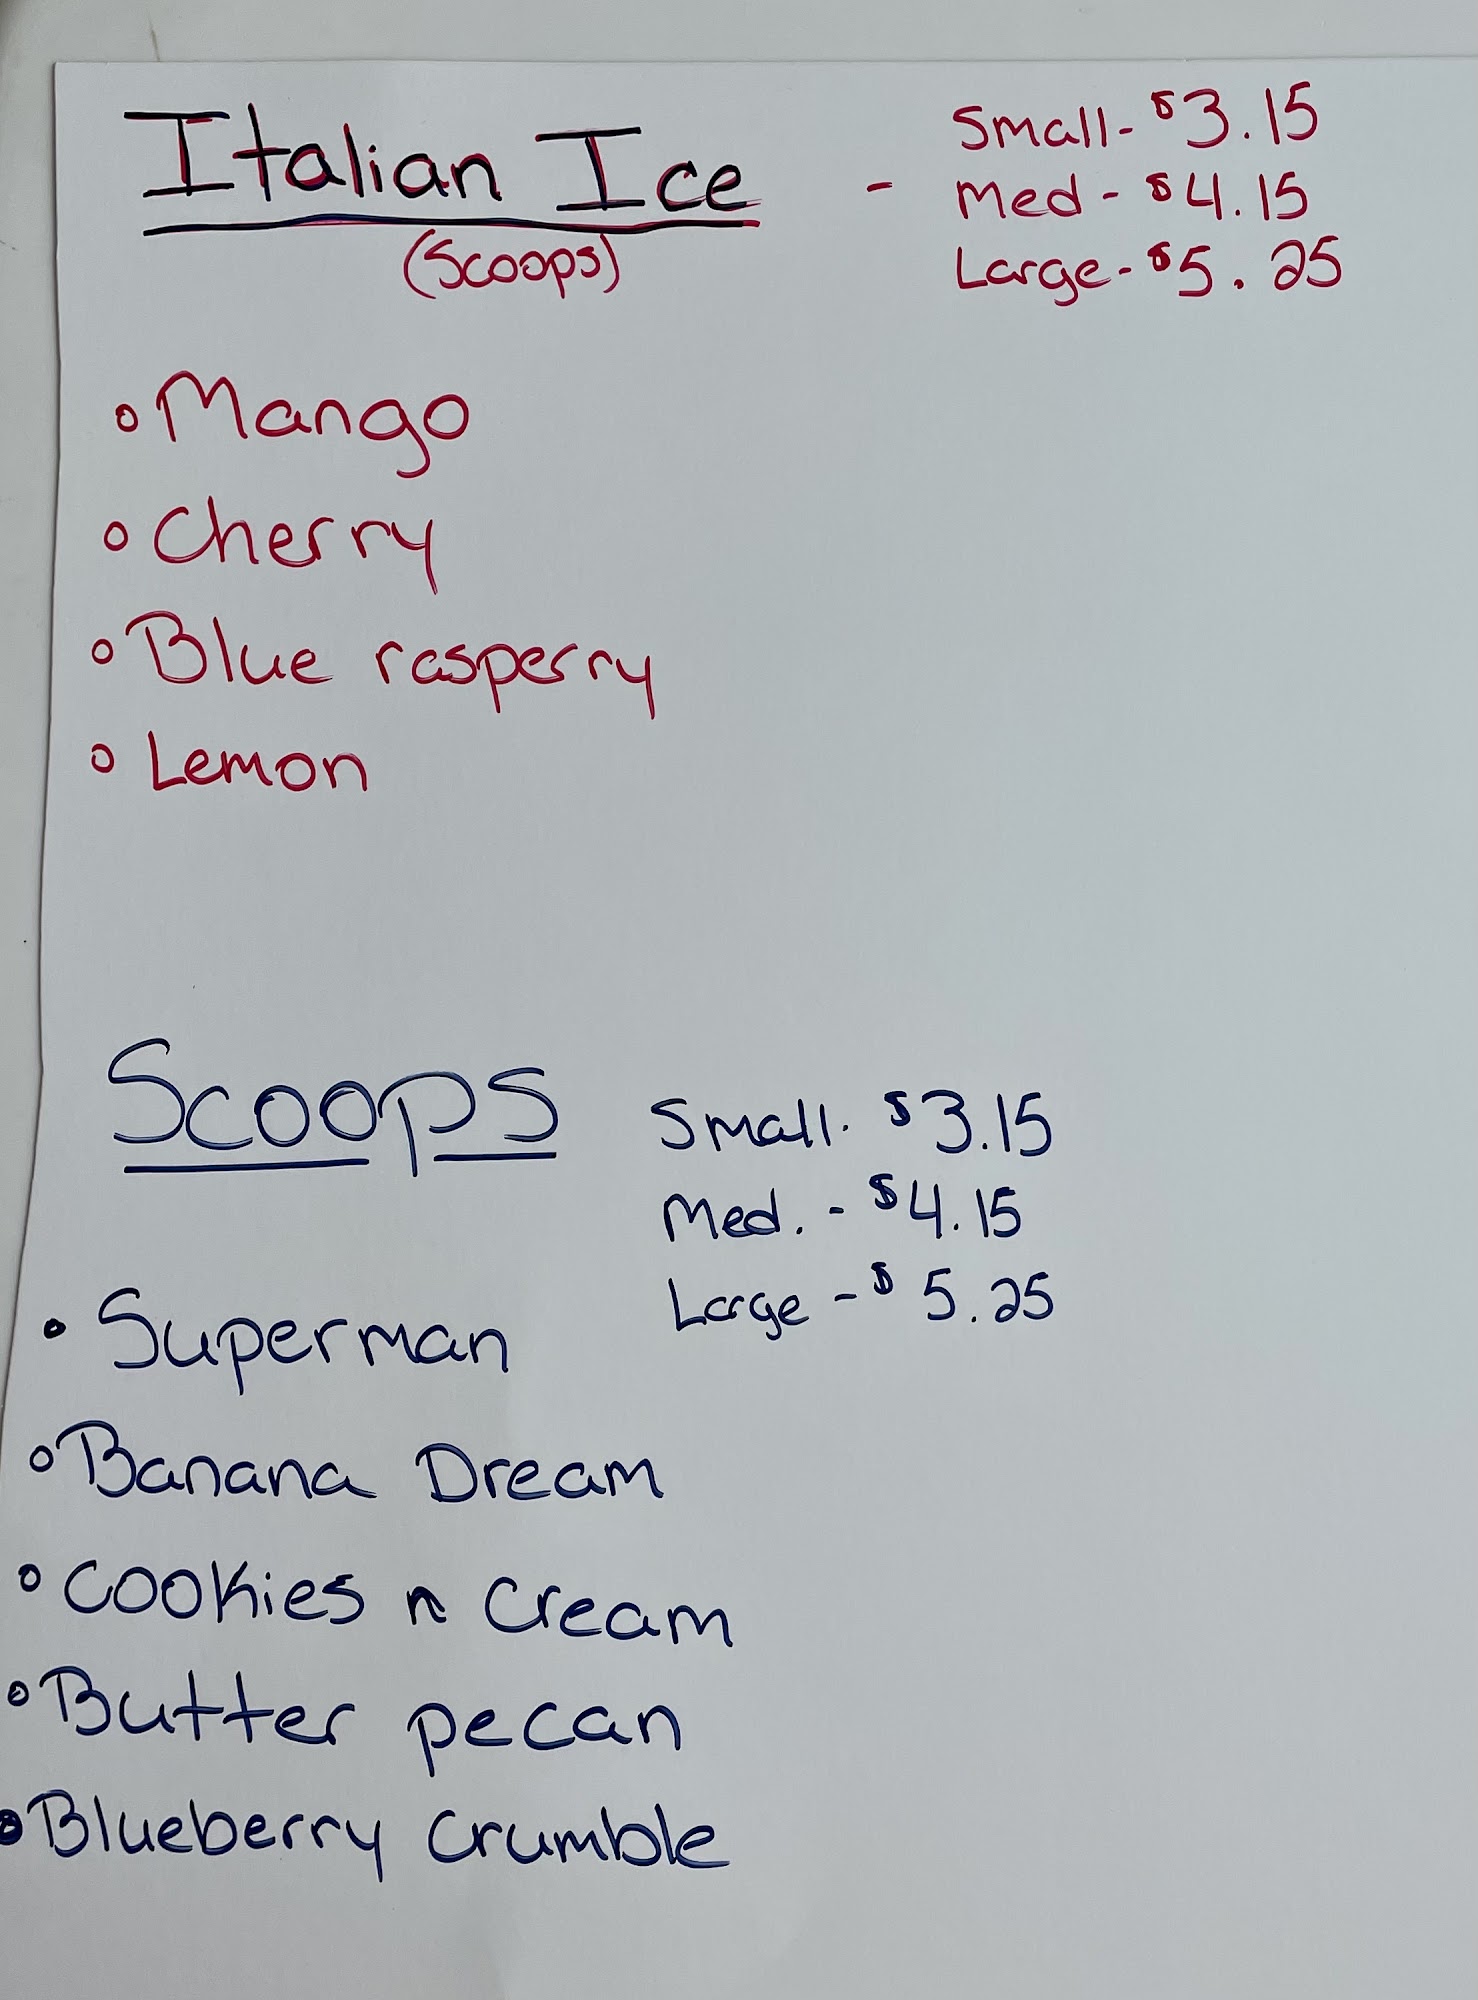 Italian Ice
(Scoops)
- Small - $3.15
Med - $4.15
Large - $5.25
• Mango
• Cherry
• Blue rasperry
• Lemon
Scoops
Small. $3.15
Med. - $4.15
Large - $5.25
• Superman
• Banana Dream
• Cookies n Cream
• Butter pecan
• Blueberry crumble